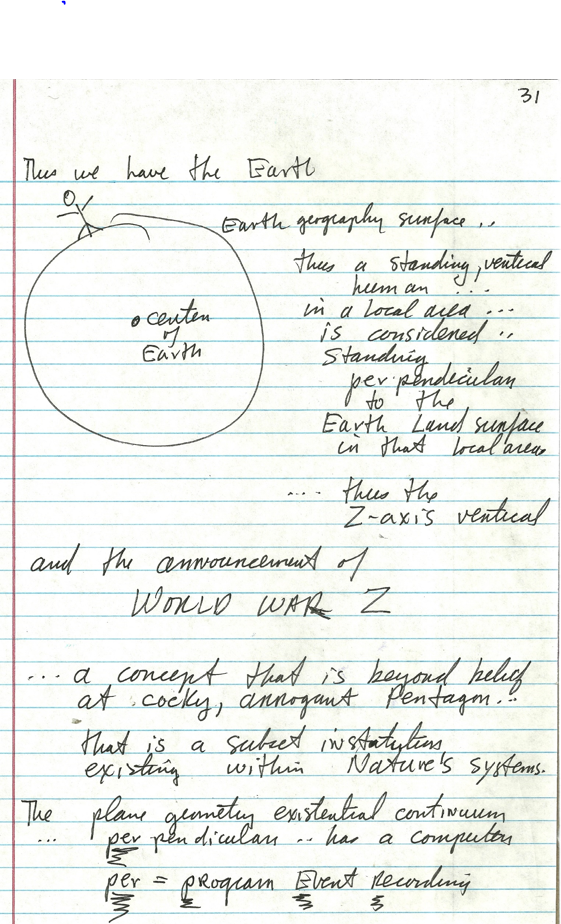 31
Thus we have the Earth
Earth geography surface ..
thus a standing, vertical
human ...
in a local area ...
is considered ..
Standing
perpendicular
to the
Earth Land surface
in that local area
• center
of
Earth
.... thus the
Z-axis vertical
and the announcement of
WORLD WAR Z
... a concept that is beyond belief
at cocky, arrogant Pentagon...
that is a subset institution
existing within Nature's systems.
The plane geometry existential continuum
... perpendicular .. has a computer
per = program Event Recording